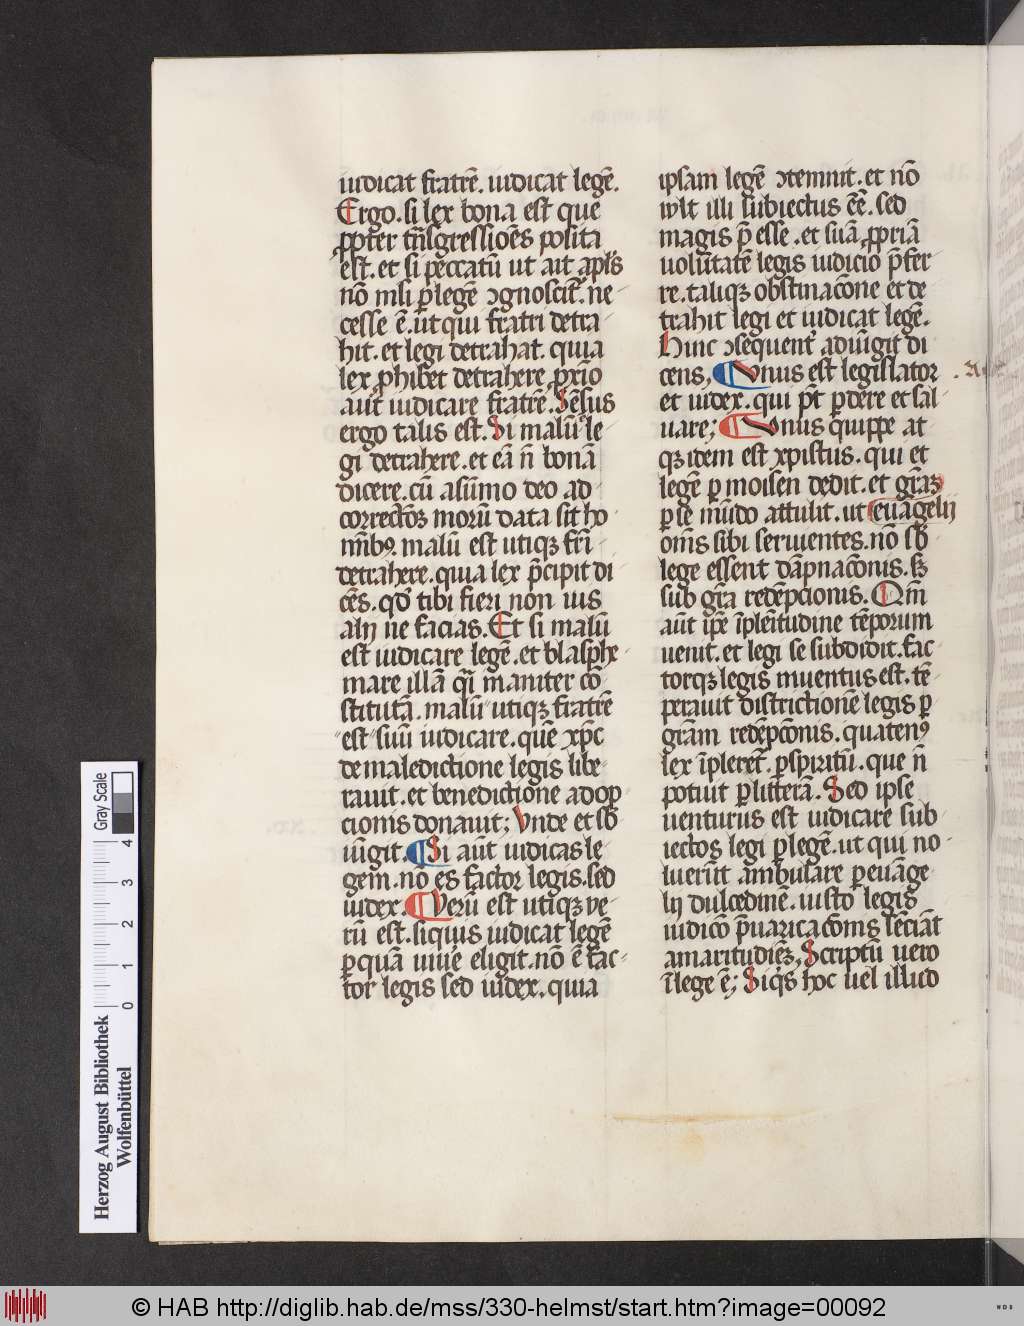 iudicat fratrē. iudicat legē.
Ergo. si lex bona est que
ꝓpter tñsgressiōes posita
est. et si peccatū ut ait apls
nō nisi ꝑ legē ↄgnoscit᷑. ne
cesse ē. ut qui fratri detra
hit. et legi detrahat. quia
lex ꝓhibet detrahere ꝓxīo
aut iudicare fratrē. Sēsus
ergo talis est. Si malū le
gi detrahere. et eā n̄ bonā
dicere. cū a sūmo deo ad
correctōꝫ morū data sit ho
mībꝯ. malū est utiqꝫ frī
detrahere. quia lex p̄cipit di
cēs. qd̄ tibi fieri non uis
alij ne facias. Et si malū
est iudicare legē. et blasphe
mare illā
stitutā. malū utiqꝫ fratrē
est suū iudicare. quē xp̄c
de maledictione legis libe
rauit. et benedictione adop
cionis donauit; Vnde et sb̄
iūgit. ¶ Si aūt iudicas le
gem. nō es factor legis. sed
iudex. ¶ Verū est utiqꝫ ve
rū est. siquis iudicat legē
ꝑ quā uiue eligit. nō ē fac
tor legis sed iudex. quia
ipsam legē ↄtemnit. et nō
wlt illi subiectus eē. sed
magis p̄ esse. et suā ꝓpriā
uolūtatē legis iudicio p̄fer
re. taliqꝫ obstinacōne et de
trahit legi et iudicat legē.
Hinc ↄsequent᷑ adiūgit di
cens, ¶ Vnus est legislator
et iudex. qui pt̄ ꝑdere et sal
uare; ¶ Vnus quippe at
qꝫ idem est xpistus. qui et
legē ꝑ moisen dedit. et grāꝫ
ꝑ se mūdo attulit. ut euāgelij
om̄s sibi seruientes. nō sb̄
lege essent dāpnacōnis. sꝫ
sub grā redēpcionis. Qm̄
aūt ip̄e īplēitudine tēporum
uenit. et legi se subdidit. fac
torqꝫ legis inuentus est. tē
perauit districtionē legis ꝑ
grām redēpcōnis. quatenꝯ
lex īpleret᷑. ꝑ spiritū. que n̄
potuit ꝑ litterā. Sed ipse
uenturus est iudicare sub
iectos legi ꝑ legē. ut qui no
luerūt ambulare ꝑ euāge
lij dulcedinē. iusto legis
iudicō p̄uaricacōnis sēciāt
amaritudiēꝫ, Scriptū uero
ī lege ē; Siqs hoc uel illud
Herzog August Bibliothek
Wolfenbüttel
Gray Scale
0 1 2 3 4
© HAB http://diglib.hab.de/mss/330-helmst/start.htm?image=00092